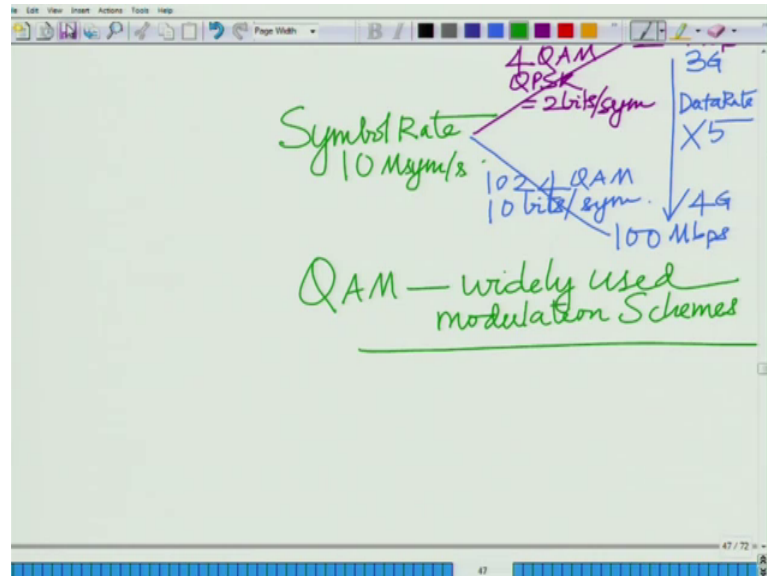 Edit View Insert Actions Tools Help
Page Width
4 QAM
QPSK
= 2bits/sym
3G
DataRate
X5
Symbol Rate
10 Msym/s
1024 QAM
10 bits/sym.
4G
100 Mbps
QAM — widely used
modulation Schemes
47 / 72
47